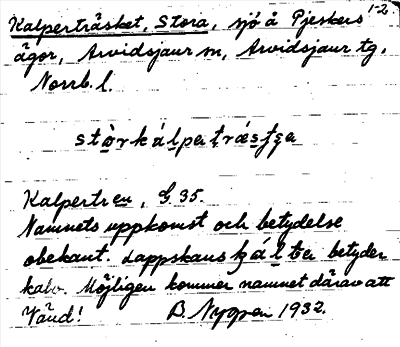 1-2
Kalperträsket, Stora, sjö å Pjeskers
ägor, Arvidsjaur sn, Arvidsjaur tg,
Norrb. l.
stòrkálpetrǽstge
Kalpertren, G. 35.
Namnets uppkomst och betydelse
obekant. Lappskans gálbe betyder
kalv. Möjligen kommer namnet därav att
Vänd! B. Nygren 1932.